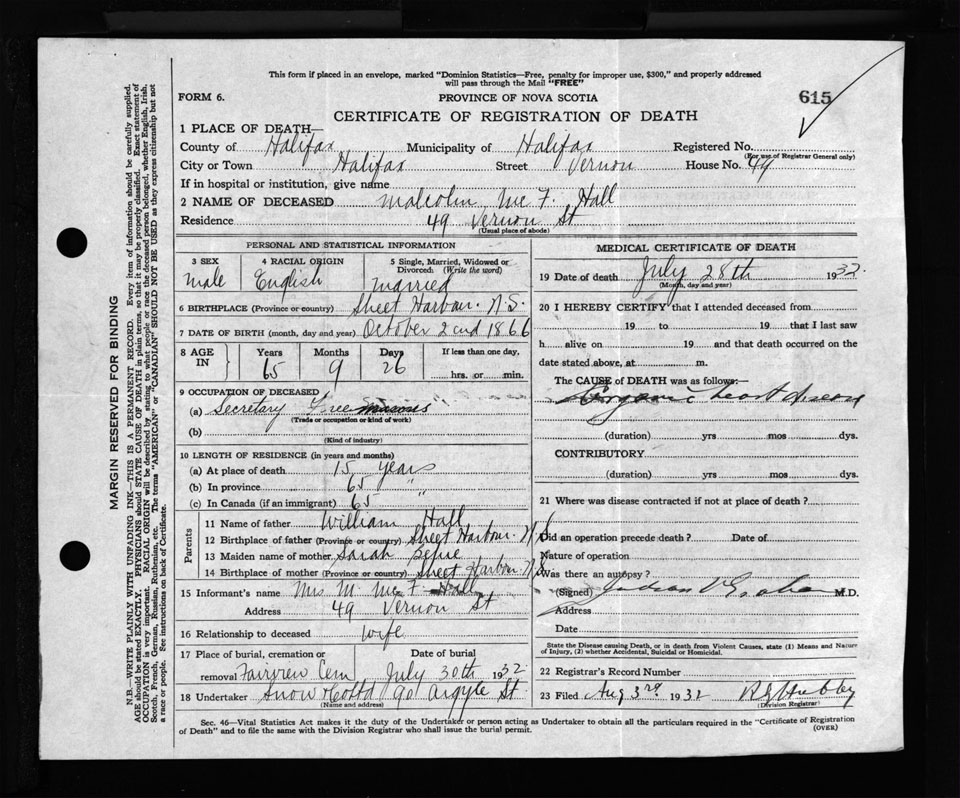 This form if placed in an envelope, marked "Dominion Statistics—Free, penalty for improper use, $300," and properly addressed
will pass through the Mail "FREE"
FORM 6.
PROVINCE OF NOVA SCOTIA
615
CERTIFICATE OF REGISTRATION OF DEATH
1 PLACE OF DEATH—
County of Halifax Municipality of Halifax Registered No.
(For use of Registrar General only)
City or Town Halifax Street Vernon House No. 49
If in hospital or institution, give name
2 NAME OF DECEASED Malcolm Mc F. Hall
Residence 49 Vernon St
(Usual place of abode)
PERSONAL AND STATISTICAL INFORMATION
3 SEX 4 RACIAL ORIGIN 5 Single, Married, Widowed or
Divorced: (Write the word)
Male English Married
6 BIRTHPLACE (Province or country) Sheet Harbour. N.S.
7 DATE OF BIRTH (month, day and year) October 2nd 1866
8 AGE IN Years Months Days If less than one day,
65 9 26 hrs. or min.
9 OCCUPATION OF DECEASED
(a) Secretary Free Masons
(Trade or occupation or kind of work)
(b)
(Kind of industry)
10 LENGTH OF RESIDENCE (in years and months)
(a) At place of death 15 years
(b) In province 65 "
(c) In Canada (if an immigrant) 65 "
Parents
11 Name of father William Hall
12 Birthplace of father (Province or country) Sheet Harbour. N.S
13 Maiden name of mother Sarah
14 Birthplace of mother (Province or country) Sheet Harbour. N.S
15 Informant's name Mrs M. Mc F Hall
Address 49 Vernon St
16 Relationship to deceased wife
17 Place of burial, cremation or Date of burial
removal Fairview Cem July 30th 1932
18 Undertaker Snow & Co Ltd 90 Argyle St
(Name and address)
MEDICAL CERTIFICATE OF DEATH
19 Date of death July 28th 1932.
(Month, day and year)
20 I HEREBY CERTIFY that I attended deceased from
19 to 19 that I last saw
h alive on 19 and that death occurred on the
date stated above, at m.
The CAUSE of DEATH was as follows:—
Organic heart disease
(duration) yrs mos dys.
CONTRIBUTORY
(duration) yrs mos dys.
21 Where was disease contracted if not at place of death?
Did an operation precede death? Date of
Nature of operation
Was there an autopsy?
(Signed) M.D.
Address
Date
State the Disease causing Death, or in death from Violent Causes, state (1) Means and Nature
of Injury, (2) whether Accidental, Suicidal or Homicidal.
22 Registrar's Record Number
23 Filed Aug 3rd 1932
(Division Registrar)
Sec. 46—Vital Statistics Act makes it the duty of the Undertaker or person acting as Undertaker to obtain all the particulars required in the "Certificate of Registration
of Death" and to file the same with the Division Registrar who shall issue the burial permit.
(OVER)
MARGIN RESERVED FOR BINDING
N.B.—WRITE PLAINLY WITH UNFADING INK—THIS IS A PERMANENT RECORD. Every item of information should be carefully supplied.
AGE should be stated EXACTLY. PHYSICIANS should STATE CAUSE OF DEATH in plain terms, so that it may be properly classified. Exact statement of
OCCUPATION is very important. RACIAL ORIGIN will be described by stating to what people or race the deceased person belonged, whether English, Irish,
Scotch, French, German, Russian, Ruthenian, etc. The terms "AMERICAN" or "CANADIAN" SHOULD NOT BE USED as they express citizenship but not
a race or people. See instructions on back of Certificate.